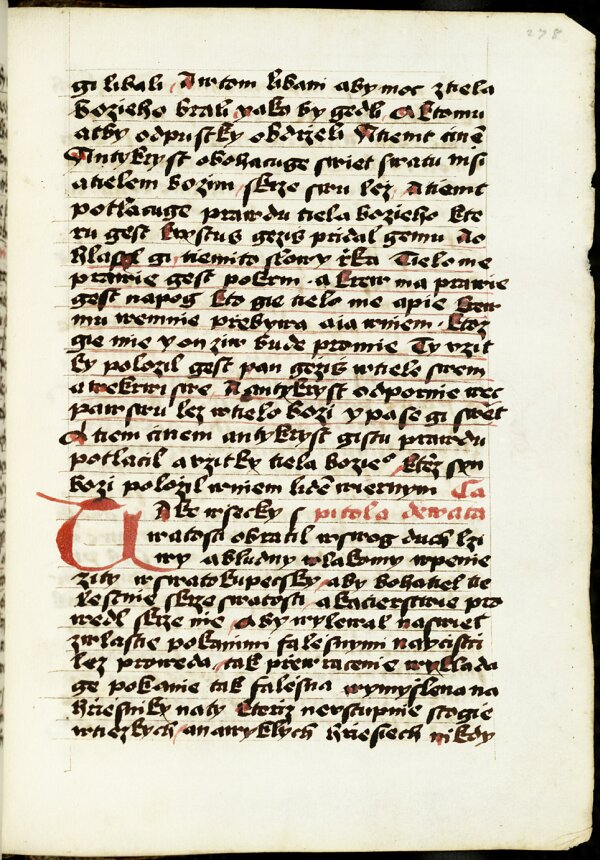 278
gi libali / A w tom libani aby moc z tiela
bozieho brali yako by gedli / A k tomu
aby odpustky obdrzeli A tiemt cinē
Antykryst obohacuge swiet swatu msi
a tielem bozim / skrze swu lez / A tiemt
potlacuge prawdu tiela bozieho kte
ru gest krystus gezis pridal gemu / Ao
hlasyl gi tiemito slowy rka Tielo me
prawie gest pokrm · a krew ma prawie
gest napog kto gie tielo me a pie krew
mu we mnie przebywa a ia w niem · ktoz
gie mie y on ziw bude pro mie Ty vzit
ky polozil gest pan gezis w tielo swem
a w ekrwi swe / A antykryst odpornie wec
paw swu lez w tielo bozi y pase gi swiet
A tiem cinem antykryst gistu prawdu
potlacil a vzitky tiela bozie° / kterz syn
bozi polozil w niem lidem wiernym Ca
Take wsecky s pitola dewata
watosti obratil w swog duch lzi
wy a bludny w lakomy w penie
zity w swatokupecsky / aby bohatel tie
lestnie skrze swatosti / a kacierstwie pro
wedl skrze nie / Aby wylewal na swiet
zwlastie pokanim falesnym naycisti
lez proweda / tak przewracenie wyklada
ge pokanie tak falesna wymyslena na
hriesniky naty kteriz newstupnie stogie
w tiezkych / a nawyklych hriesiech nikdy